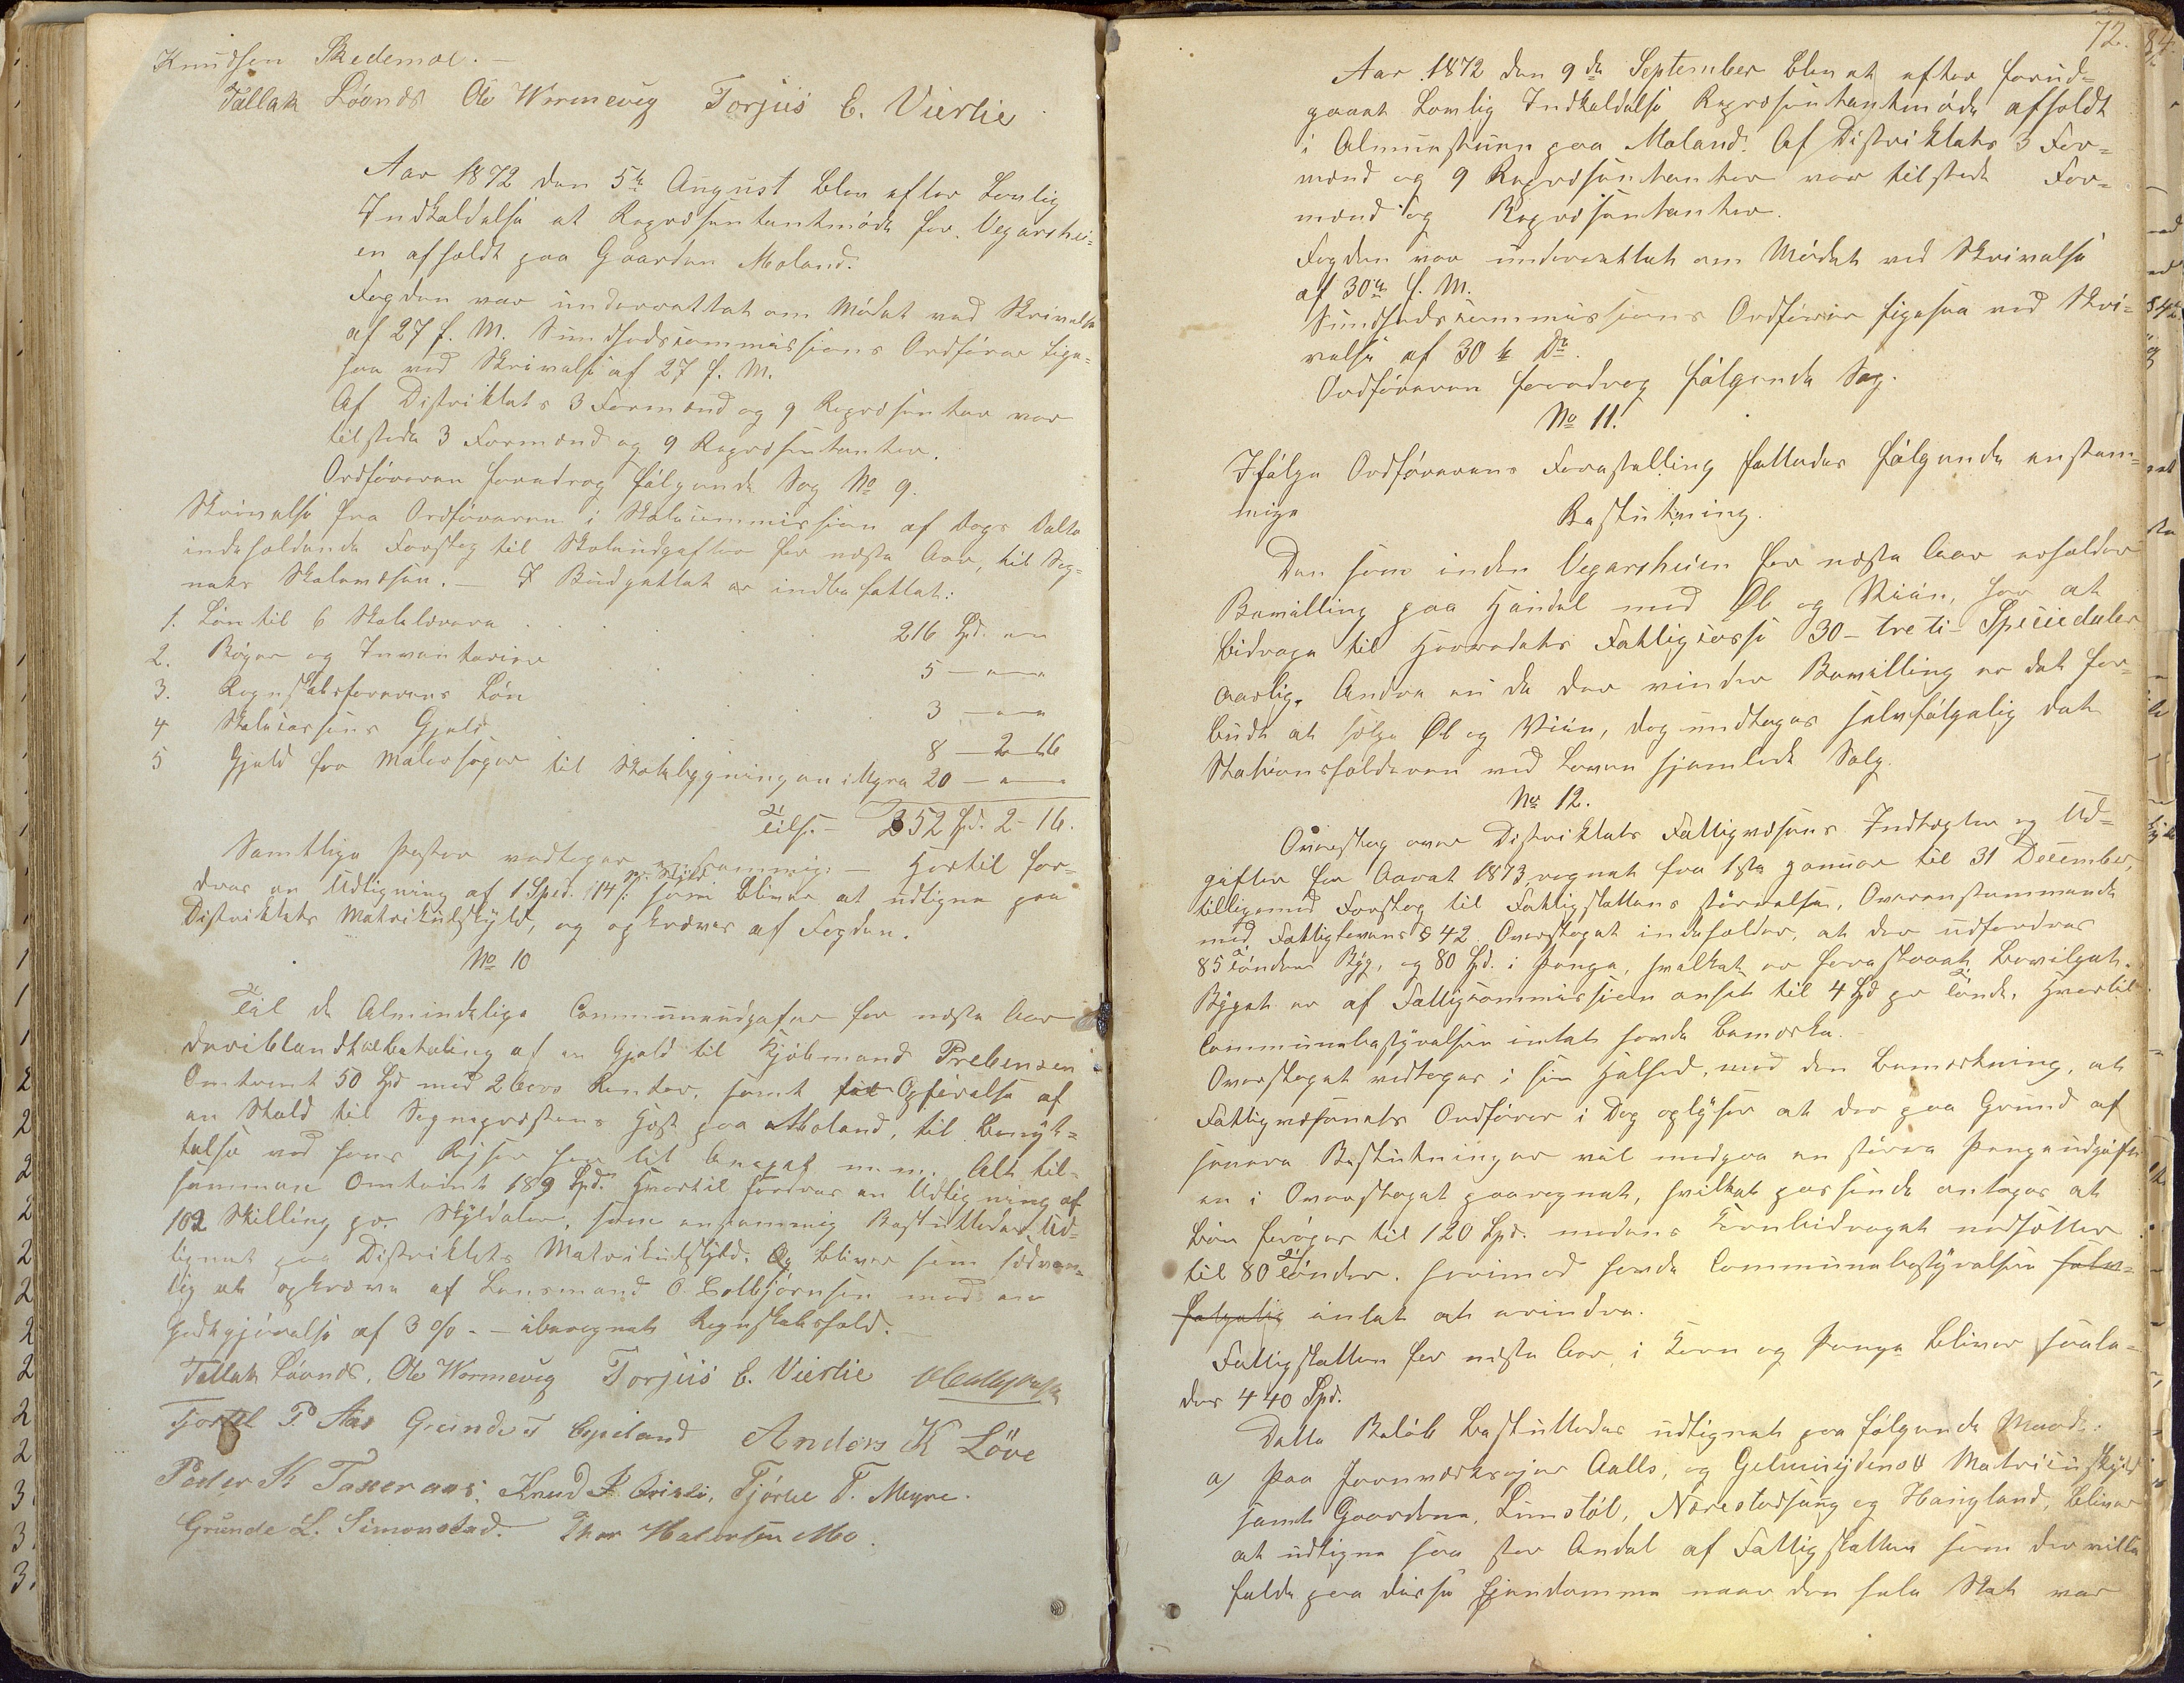 Knudsen Skedemoe. —
Tallak Lövnes Ole Wormevig Torjus E. Vierlie
Aar 1872 den 5te August blev efter Lovlig
Indkaldelse et Repræsentantmöde for Vegarshei=
en afholdt paa Gaarden Moland.
Fogden var underrettet om Mödet ved Skrivelse
af 27 f. M. Sundhedscommissions Ordförer lige=
saa ved Skrivelse af 27 f. M.
Af Distriktets 3 Formænd og 9 Repræsenter var
tilstede 3 Formænd og 9 Repræsentanter.
Ordföreren foredrog fölgende Sag No 9.
Skrivelse fra Ordföreren i Skolecommission af Dags Dalto
indeholdende Forslag til Skoleudgifter for næste Aar, til Sog=
nets Skolevæsen. — I Budgettet er indbefattet:
1. Lön til 6 Skolelærere . . . 216 Spd. " "
2. Böger og Inventarier . . 5 — " — "
3. Regnskabsförerens Lön . . 3 — " — "
4 Skolecassens Gjeld . . 8 — 2 — 16
5 Gjeld for Materialer til Skolebygningen i Myra 20 — " — "
Tils. — 252 Spd. 2 — 16.
Samtlige Poster vedtoges eenstemmig. — Hertil for=
pr. Skyld
dres en Udligning af 1 Sped. 14 /: som bliver at udligne paa
Distriktets Matrikulskyld, og opkræves af Fogden.
No 10
Til de Almindelige Communeudgifter for næste Aar
deriblandt tilbetaling af en Gjeld til Kjöbmand Prebensen
Omtrent 50 Spd med 2 Aars Renter, samt til Opförelse af
en Stald til Sognepræstens Hest paa Moland, til Benyt=
telse ved hans Rejser her til Annexet m. m. Alt til=
sammen Omtrent 189 Spd. Hvortil fordres en Udligning af
102 Skilling pr. Skyldaler, som enstemmig Besluttedes Ud=
lignet paa Distriktets Matrikulskyld. Og bliver som sædvan=
lig at opkræve af Lensmand O. Colbjörnsen med en
Godtgjörelse af 3 % — iberegnet Regnskabshold. —
Tallak Lövnes, Ole Wormevig Torjus E. Vierlie
Tjostel P Aas Grunde T Espeland Anders K Löve
Peder K Taxeraas, Knud, Tjörlie T. Myre.
Grunde L. Simonstad. Thor Halvorsen Mo.
72.
Aar 1872 den 9de September blev et efter forud=
gaaet Lovlig Indkaldelse Repræsentantmöde afholdt
i Almuestuen paa Moland. Af Distriktets 3 For=
mænd og 9 Repræsentanter var tilstede For=
mænd og Repræsentanter.
Fogden var underrettet om Mödet ved Skrivelse
af 30te f. M.
Sundhedscommissions Ordförer ligesaa ved Skri=
velse af 30te Do.
Ordföreren foredrog fölgende Sag.
No 11.
Ifölge Ordförerens Forestilling fattedes fölgende enstem=
mige Beslutning.
Den som inden Vegarsheien for næste Aar erholder
Bevilling paa Handel med Øl og Viin, har at
bidrage til Herredets Fattigcasse 30 — treti — Speciedaler
aarlig. Andre end de der vinder Bevilling er det for=
budt at sælge Øl og Viin, dog undtages selvfölgelig det
Stationsholderen ved Loven hjemlede Salg.
No 12.
Overslag over Distriktets Fattigvæsens Indtægter og Ud=
gifter for Aaret 1873, regnet fra 1ste Januar til 31 December,
tilligemed Forslag til Fattigskattens störrelse, Overenstemmende
med Fattiglovens § 42. Overslaget indeholder, at der udfordres
85 Tönder Byg, og 80 Spd. i Penge, hvilket er forestaaet bevilget.
Bygget er af Fattigcommissionen ansat til 4 Spd pr Tönde, hvortil
Communebestyrelsen intet havde bemærke.
Overslaget vedtoges i sin Helhed, med den Bemærkning, at
Fattigvæsenets Ordförer i Dag oplyser at der paa Grund af
senere Beslutninger vil medgaa en större Pengeudgift
en i Overslaget paaregnet, hvilket passende antoges at
bör foröges til 120 Spd. medens Kornbidraget nedsættes
til 80 Tönder. hvorimod havde Communebestyrelsen selv=
fölgelig intet at erindre.
Fattigskatten for næste Aar, i Korn og Penge bliver saale=
des 440 Spd.
Dette Belöb besluttedes udlignet paa fölgende Maade:
a) Paa Jernværksejer Aalls, og Gelmuydens Matriculskyld
samt Gaardene, Limstöl, Nærestadhaug og Haugland, bliver
at udligne saa stor Andel af Fattigskatten som der vilde
falde paa disse Ejendomme naar den hele Skat var